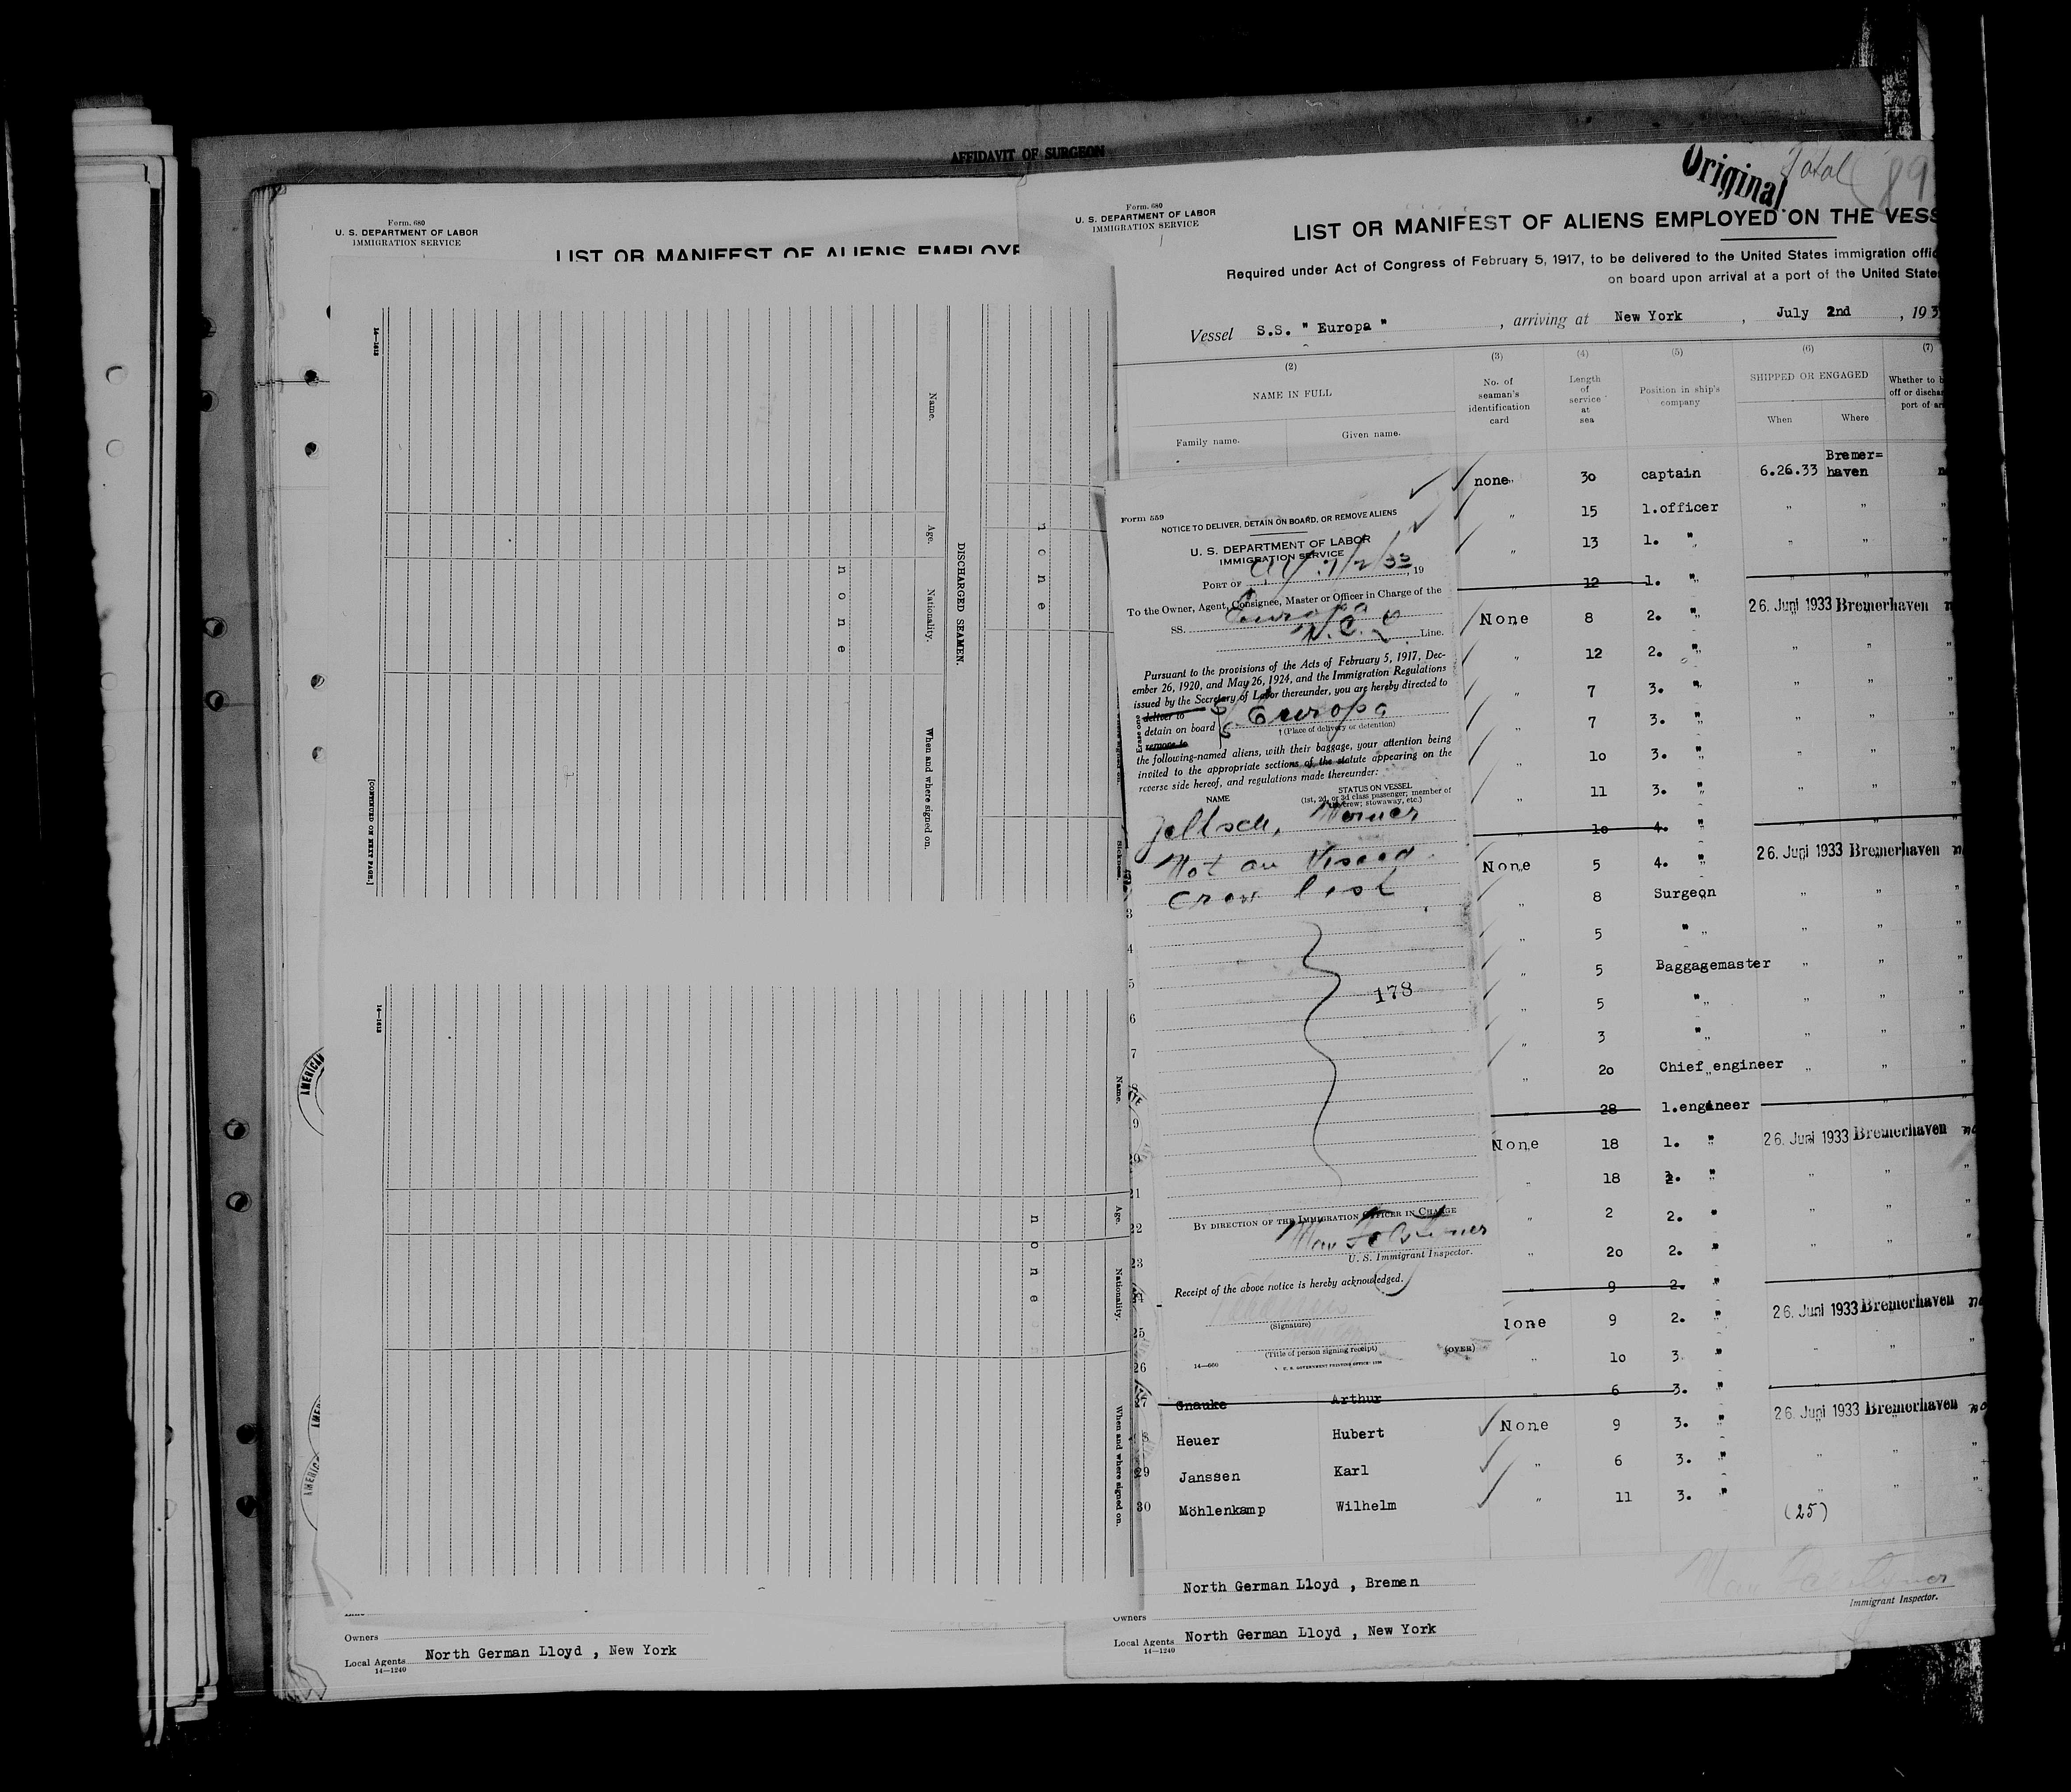 AFFIDAVIT OF SURGEON
Form 680
U. S. DEPARTMENT OF LABOR
IMMIGRATION SERVICE
LIST OR MANIFEST OF ALIENS EMPLOYE
14—1613
Name.
Age.
Nationality.
When and where signed on.
DISCHARGED SEAMEN.
none
none
[CONTINUED ON NEXT PAGE.]
14—1613
Name.
Age.
Nationality.
When and where signed on.
none
AMERICAN
Owners
Local Agents North German Lloyd , New York
14—1240
Original
Total
Form 680
U. S. DEPARTMENT OF LABOR
IMMIGRATION SERVICE
LIST OR MANIFEST OF ALIENS EMPLOYED ON THE VESS
Required under Act of Congress of February 5, 1917, to be delivered to the United States immigration offic
on board upon arrival at a port of the United State
Vessel S.S. " Europa " , arriving at New York , July 2nd , 193
(2) (3) (4) (5) (6) (7)
NAME IN FULL
Family name. Given name.
No. of seaman's identification card
Length of service at sea
Position in ship's company
SHIPPED OR ENGAGED
When Where
Whether to b
off or dischar
port of arr
none " 30 captain 6.26.33 Bremer=haven n
" 15 1.officer " " "
" 13 1. " " " "
" 12 1. " " " "
None 8 2. " 26. Juni 1933 Bremerhaven
" 12 2. " " " "
" 7 3. " " " "
" 7 3. " " " "
" 10 3. " " " "
" 11 3. " " " "
" 10 4. " " " "
None 5 4. " 26. Juni 1933 Bremerhaven
" 8 Surgeon " " "
" 5 " " " "
" 5 Baggagemaster " " "
" 5 " " " "
" 3 " " " "
" 20 Chief engineer " " "
" 28 1.engineer " " "
None 18 1. " 26. Juni 1933 Bremerhaven no
" 18 2. " " " "
" 2 2. " " " "
" 20 2. " " " "
" 9 2. " " " "
None 9 2. " 26. Juni 1933 Bremerhaven no
" 10 3. " " " "
27 Gnauke Arthur " 6 3. " " " "
28 Heuer Hubert None 9 3. " 26. Juni 1933 Bremerhaven no
29 Janssen Karl " 6 3. " " " "
30 Möhlenkamp Wilhelm " 11 3. " " " "
(25)
North German Lloyd , Bremen
Owners
Local Agents North German Lloyd , New York
14—1240
Immigrant Inspector.
Form 559
NOTICE TO DELIVER, DETAIN ON BOARD, OR REMOVE ALIENS
U. S. DEPARTMENT OF LABOR
IMMIGRATION SERVICE
PORT OF N Y 7/2/33, 19
To the Owner, Agent, Consignee, Master or Officer in Charge of the
SS. Europa
N. G. L Line.
Pursuant to the provisions of the Acts of February 5, 1917, Dec-
ember 26, 1920, and May 26, 1924, and the Immigration Regulations
issued by the Secretary of Labor thereunder, you are hereby directed to
Erase one
deliver to
detain on board SS Europa
remove to
† (Place of delivery or detention)
the following-named aliens, with their baggage, your attention being
invited to the appropriate sections of the statute appearing on the
reverse side hereof, and regulations made thereunder:
NAME STATUS ON VESSEL
(1st, 2d, or 3d class passenger; member of
crew; stowaway, etc.)
Jeltsch, Werner
Not on Visaed
crew list
178
BY DIRECTION OF THE IMMIGRATION OFFICER IN CHARGE
U. S. Immigrant Inspector.
Receipt of the above notice is hereby acknowledged.
(Signature)
(Title of person signing receipt)
(OVER)
14—660
U. S. GOVERNMENT PRINTING OFFICE